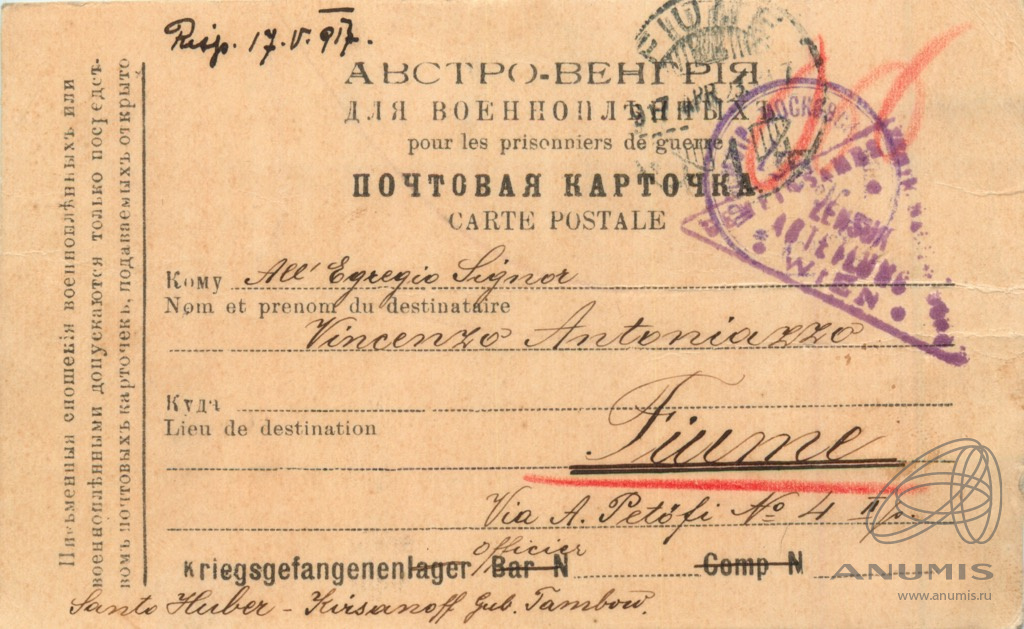 Risp. 17.V.917.
FIUME
917 APR 23
АВСТРО-ВЕНГРІЯ
ДЛЯ ВОЕННОПЛѢННЫХЪ
pour les prisonniers de guerre
ПОЧТОВАЯ КАРТОЧКА
CARTE POSTALE
ZENSUR
ABTEILUNG
WIEN
Кому All' Egregio Signor
Nom et prenom du destinataire
Vincenzo Antoniazzo
Куда
Lieu de destination
Fiume
Via A. Petőfi No 4
Officier
Kriegsgefangenenlager Bar N Comp N
Santo Huber - Kirsanoff Gub. Tambow.
Письменныя сношенія военноплѣнныхъ или
военноплѣнными допускаются только посредст-
вомъ почтовыхъ карточекъ, подаваемыхъ открыто
ANUMIS
www.anumis.ru